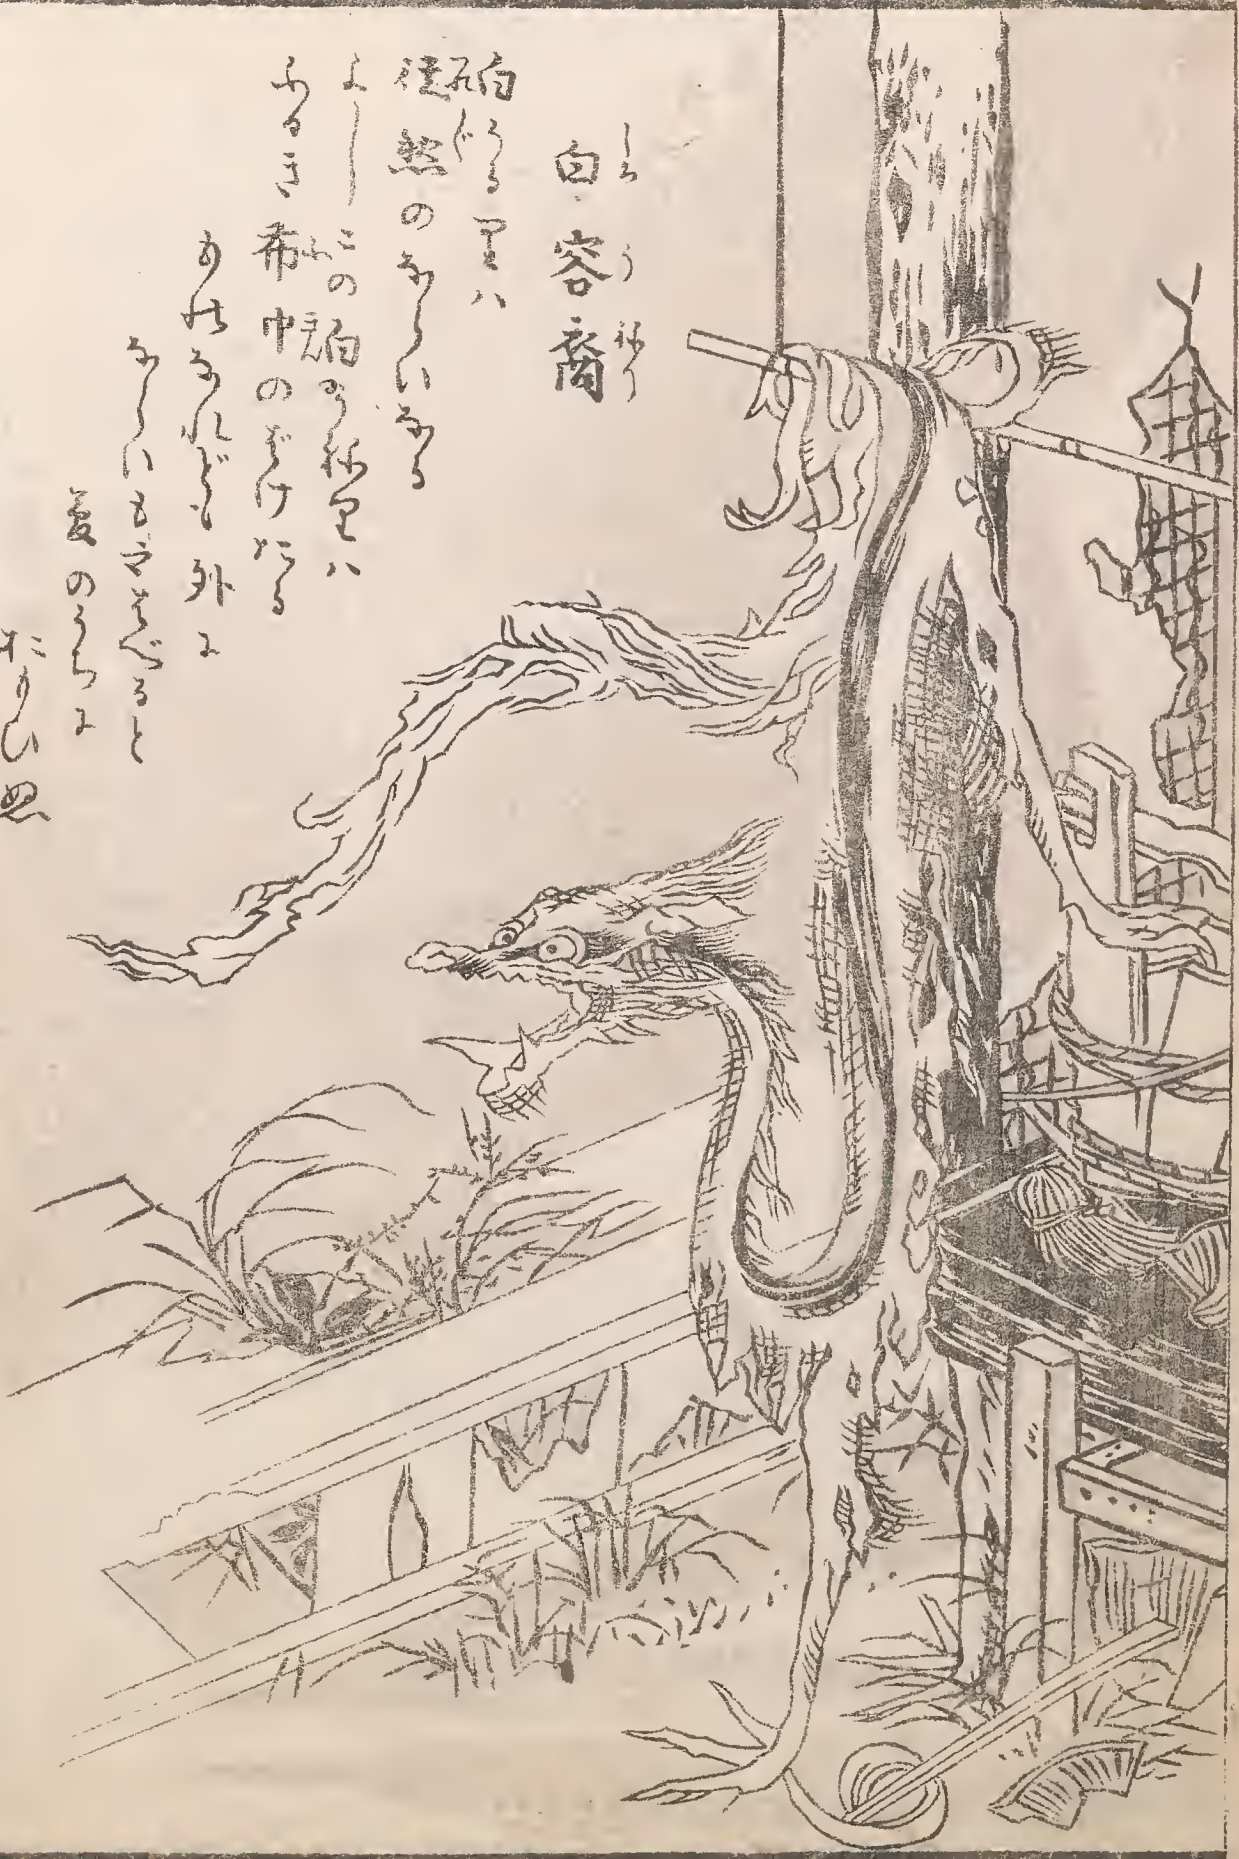 白容裔
しろうねり
白うるりハ
徒然のならいなる
よしこの白うねりハ
ふるき布巾のばけたる
ものなれども外に
ならいもやはべると
夢のうちに
おもひぬ